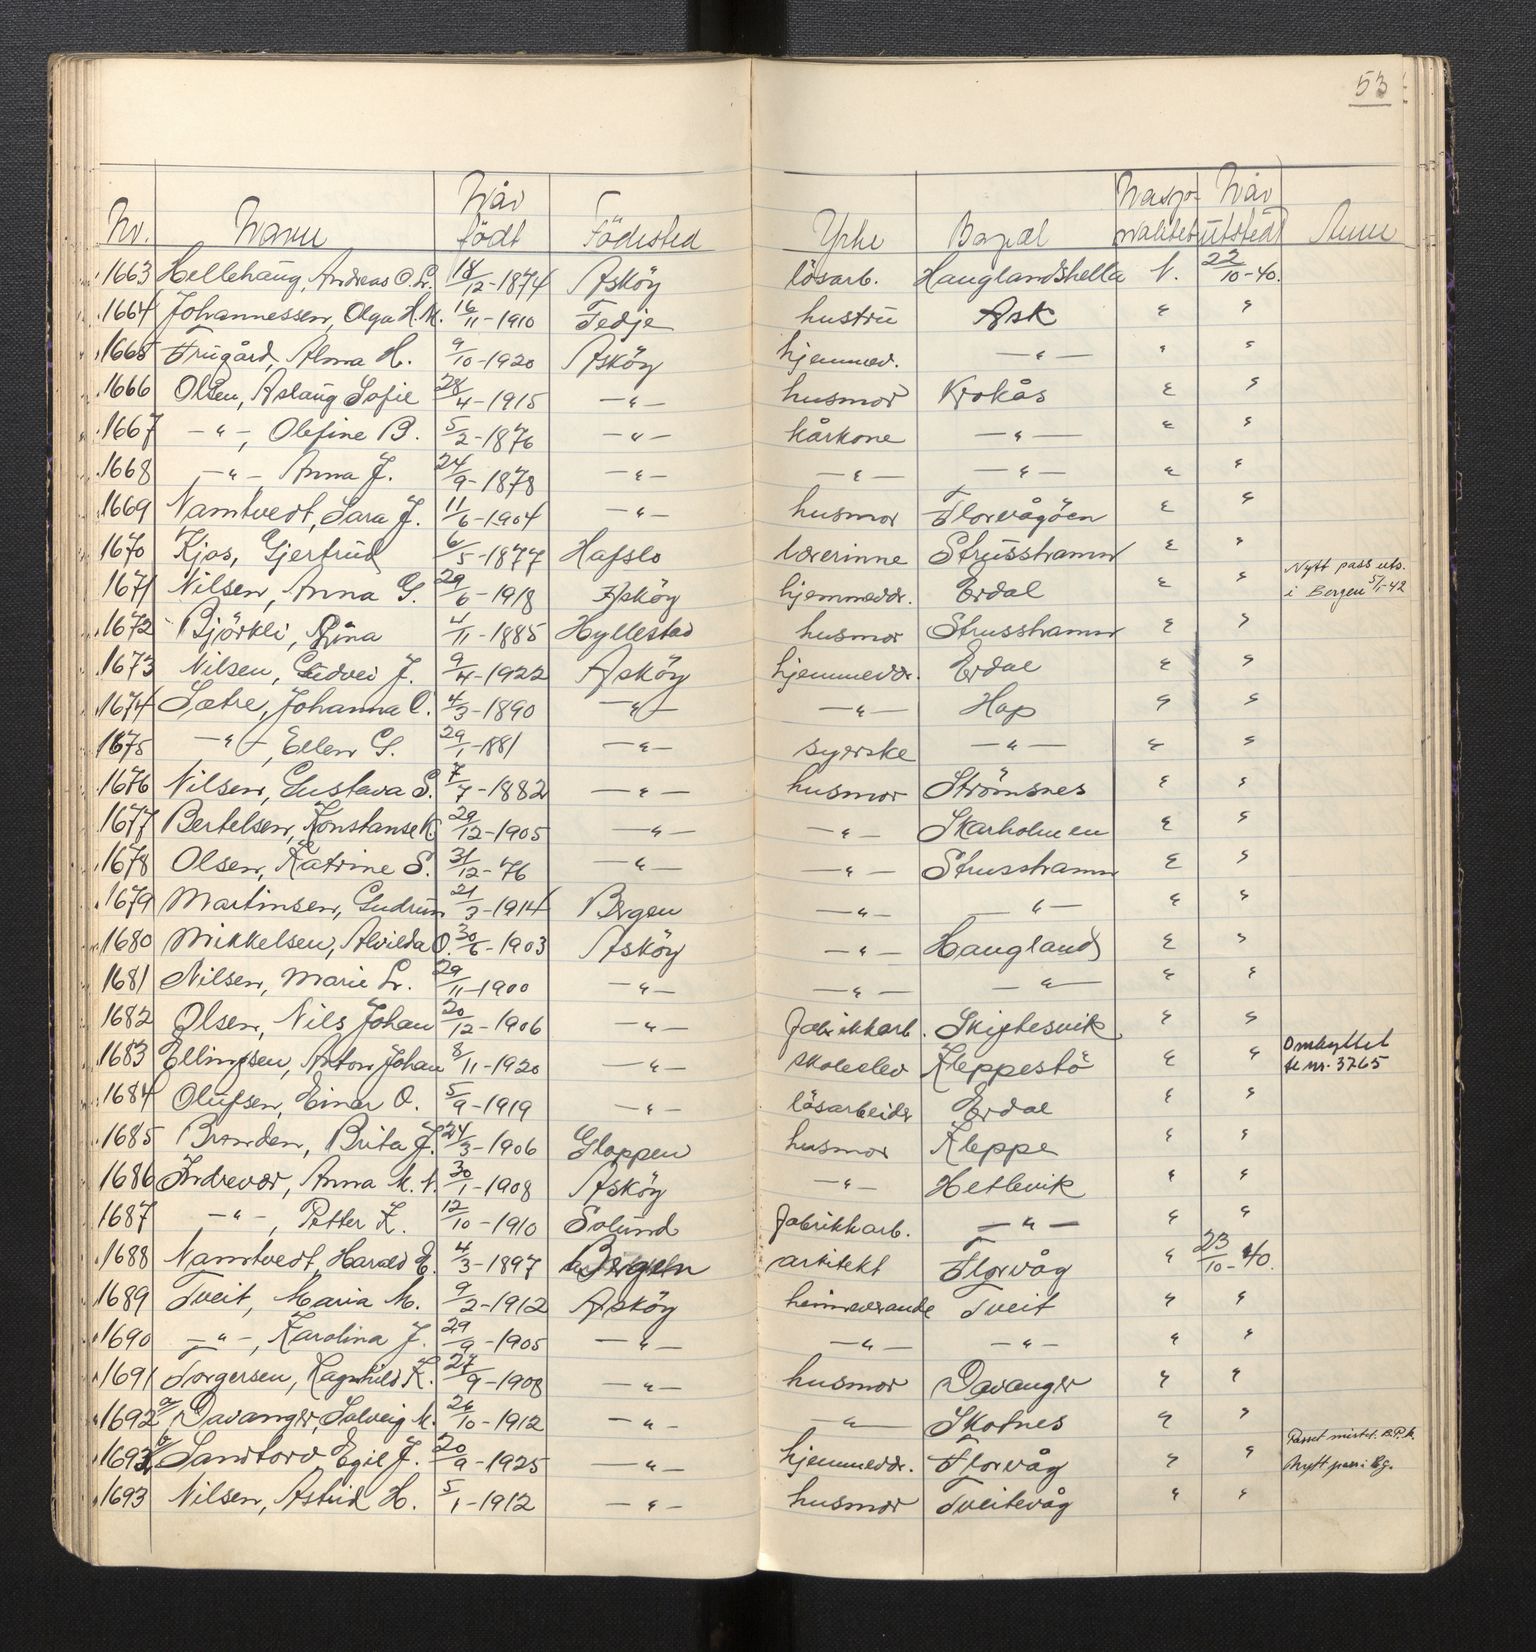 53
Nr. Navn Når født Födested Yrke Bopæl Nasjonalitet Når utstedt Anm
1663 Hellehaug, Andreas O. L. 18/12-1874 Asköy lösarb. Hauglandshella N. 22/10-40.
1664 Johannessen, Olga H. M. 16/11-1910 Fedje hustru Ask " "
1665 Frugård, Alma H. 9/10-1920 Asköy hjemmev. —"— " "
1666 Olsen, Aslaug Sofie 28/4-1915 —"— husmor Krokås " "
1667 —"—, Olefine B. 5/2-1876 —"— kårkone —"— " "
1668 —"— Anna J. 24/9-1878 —"— —"— —"— " "
1669 Namtvedt, Sara J. 11/6-1904 —"— husmor Florvågöen " "
1670 Kjos, Gjertrud 6/5-1877 Hafslo lærerinne Strusshamn " "
1671 Nilsen, Anna G. 29/6-1918 Asköy hjemmevær. Erdal " " Nytt pass uts. i Bergen 5/1-42
1672 Björkli, Rina 4/11-1885 Hyllestad husmor Strusshamn " "
1673 Nilsen, Gudvei J. 9/4-1922 Asköy hjemmevær. Erdal " "
1674 Sætre, Johanna O. 4/3-1890 —"— —"— Hop " "
1675 —"—, Ellen G. 29/1-1881 —"— syerske —"— " "
1676 Nilsen, Gustava S. 7/7-1882 —"— husmor Strömsnes " "
1677 Bertelsen, Konstanse K. 29/12-1905 —"— —"— Skarholmen " "
1678 Olsen, Katrine S. 31/12-76 —"— —"— Strusshamn " "
1679 Martinsen, Gudrun 21/3-1914 Bergen —"— —"— " "
1680 Mikkelsen, Alvilda O. 30/6-1903 Asköy —"— Haugland " "
1681 Nilsen, Marie L. 29/11-1900 —"— —"— —"— " "
1682 Olsen, Nils Johan 20/12-1906 —"— fabrikkarb. Skiftesvik " "
1683 Ellingsen, Anton Johan 8/11-1920 —"— skoleelev Kleppestö " " Ombyttet te nr. 3765
1684 Olufsen, Einar O. 5/9-1919 —"— lösarbeider Erdal " "
1685 Branden, Brita J. 24/3-1906 Gloppen husmor Kleppe " "
1686 Indrevær, Anna M. N. 30/1-1908 Asköy —"— Hetlevik " "
1687 —"—, Petter K. 12/10-1910 Solund fabrikkarb. —"— " "
1688 Namtvedt, Harald E. 4/3-1897 Bergen arkitekt Florvåg " 23/10-40.
1689 Tveit, Maria M. 9/2-1912 Asköy heimeverande Tveit " "
1690 —"—, Karolina J. 29/9-1905 —"— —"— —"— " "
1691 Torgersen, Ragnhild K. 27/9-1908 —"— husmor Davanger " "
1692 a/ Davanger, Solveig M. 26/10-1912 —"— —"— Skotnes " "
1692 b/ Sandtorv Egil J. 20/9-1925 —"— hjemmevær. Florvåg " " Passet mistet. B.P.k. Nytt pass i Bg.
1693 Nilsen, Astrid H. 5/1-1912 —"— husmor Tveitevåg " "